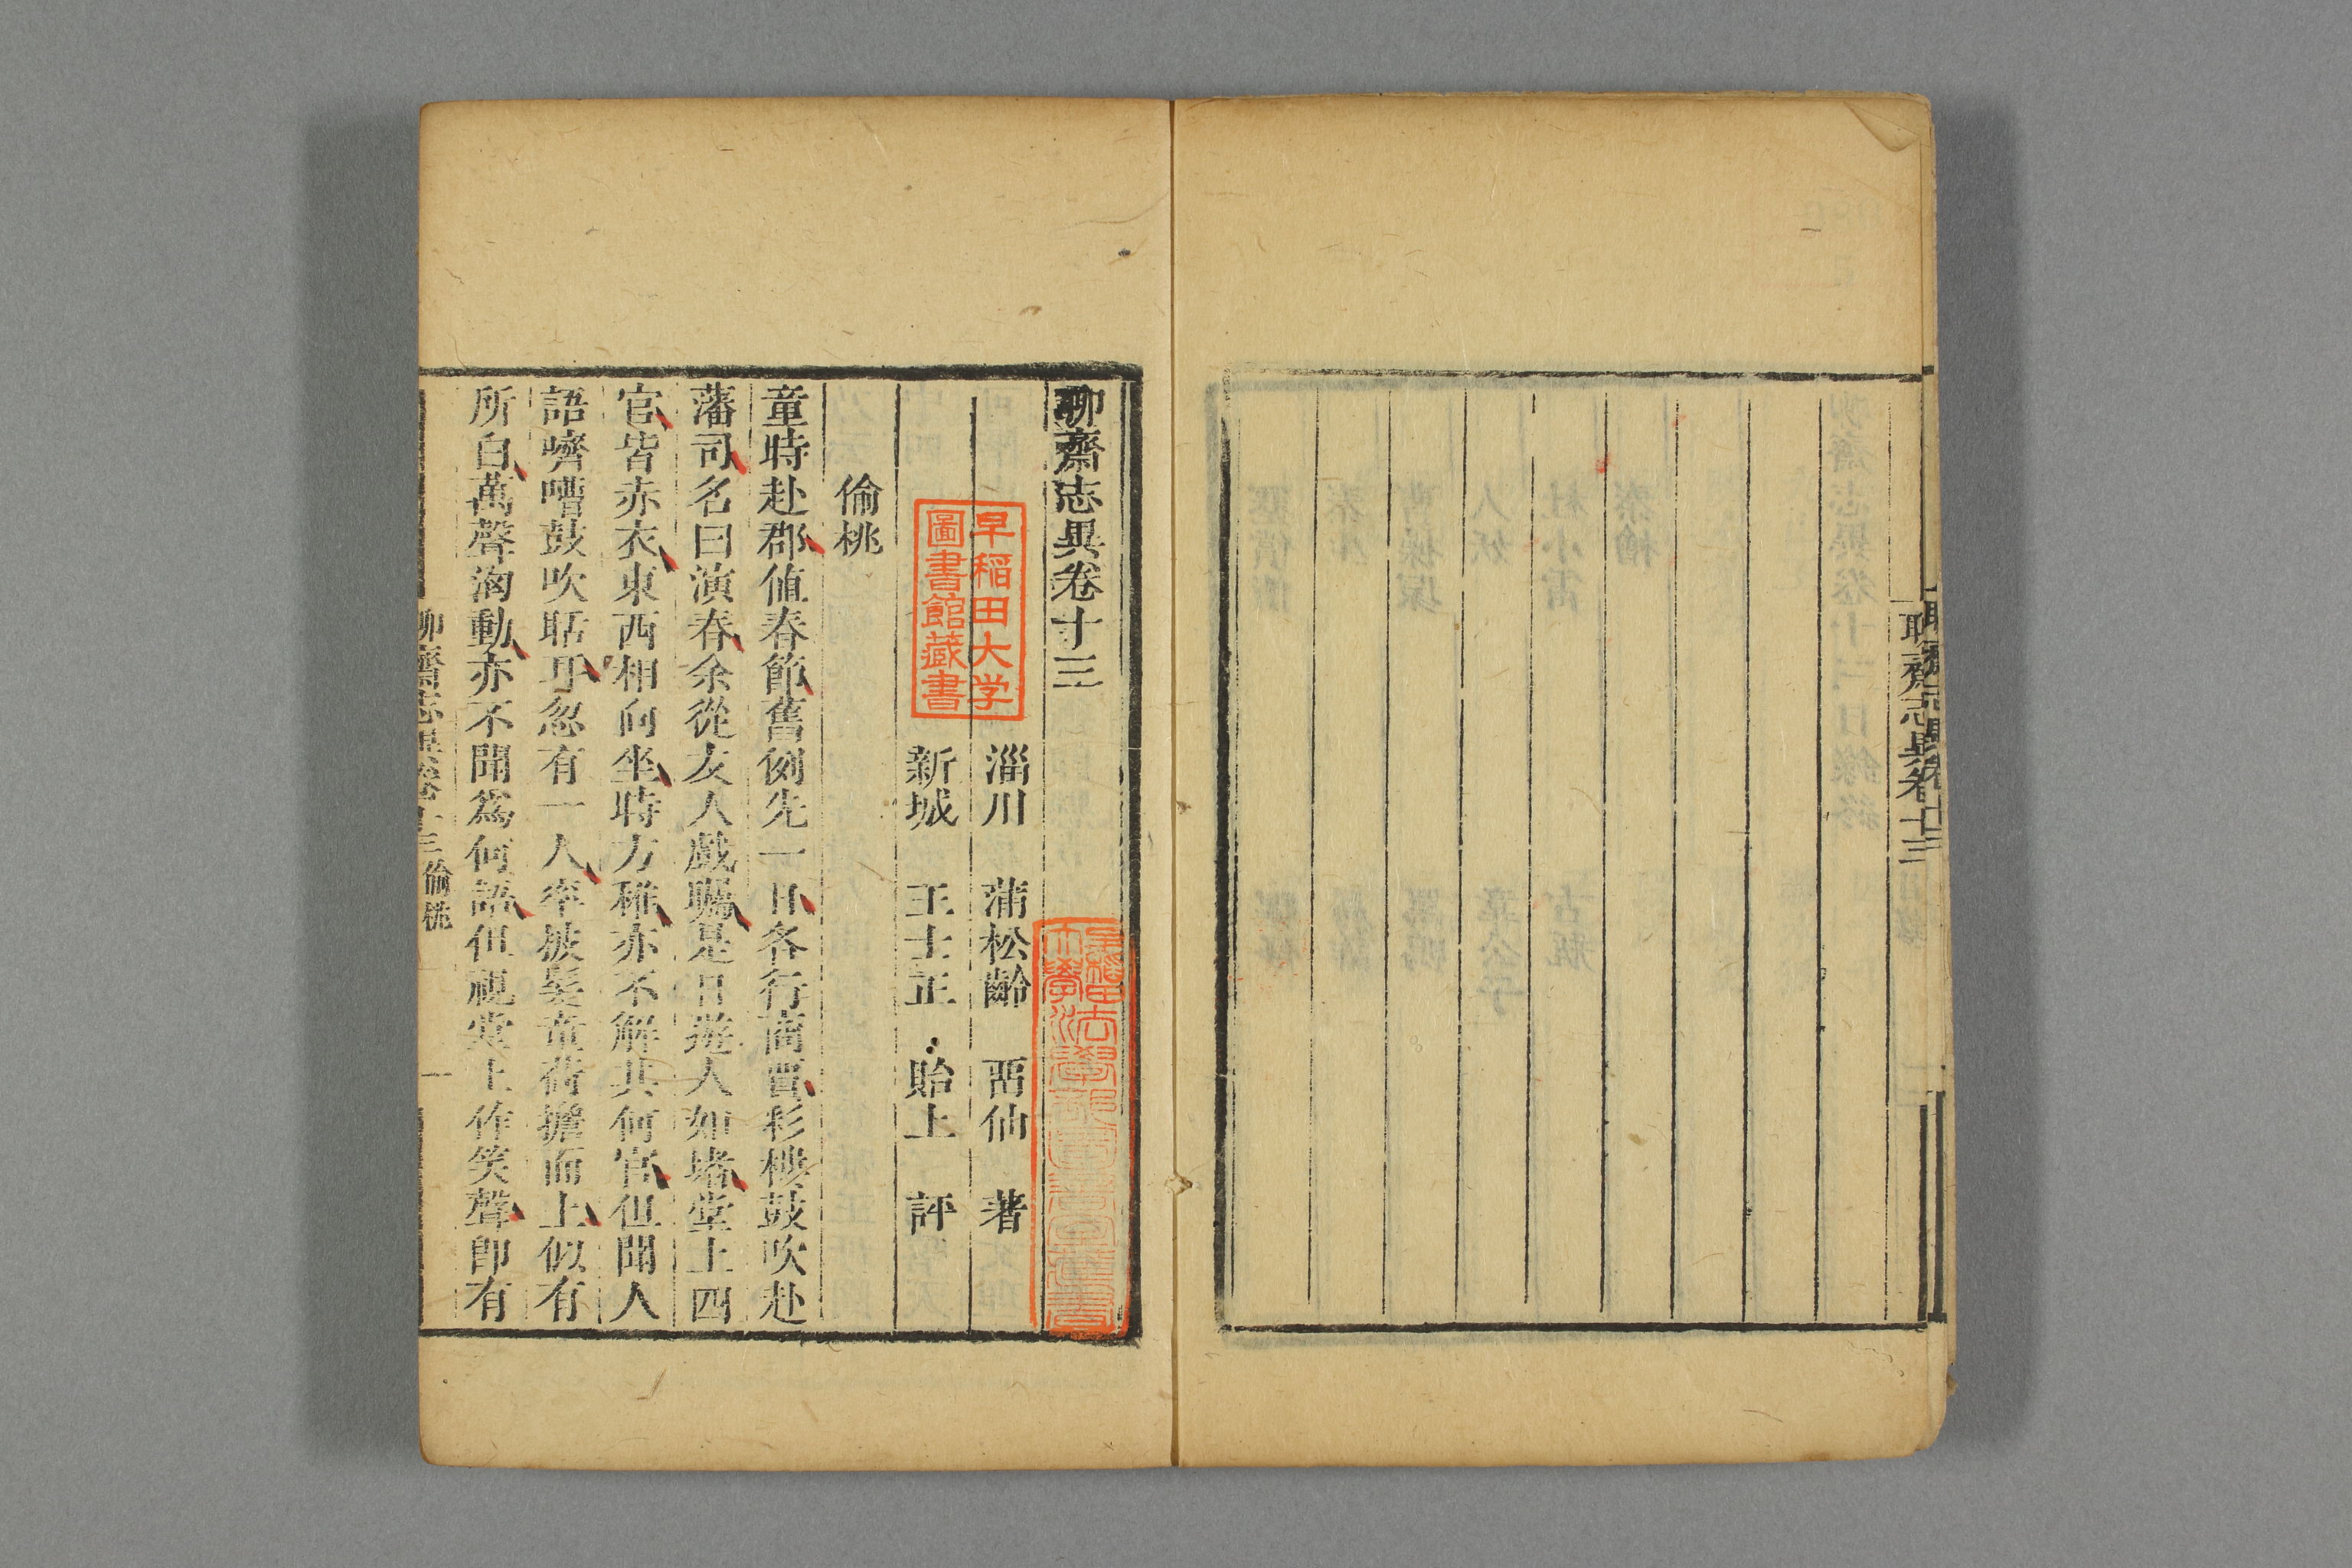 聊齋志異卷十三
聊齋志異卷十三
淄川 蒲松齡 畱仙 著
新城 王士正 貽上 評
早稲田大学
圖書館藏書
偷桃
童時赴郡值春節舊例先一日各行商賈彩樓鼓吹赴
藩司名曰演春余從友人戲矚是日遊人如堵堂上四
官皆赤衣東西相向坐時方稚亦不解其何官但聞人
語嚌嘈鼓吹聒耳忽有一人率披髮童荷擔而上似有
所白萬聲洶動亦不聞為何語但視堂上作笑聲即有
聊齋志異卷十三 偷桃 一